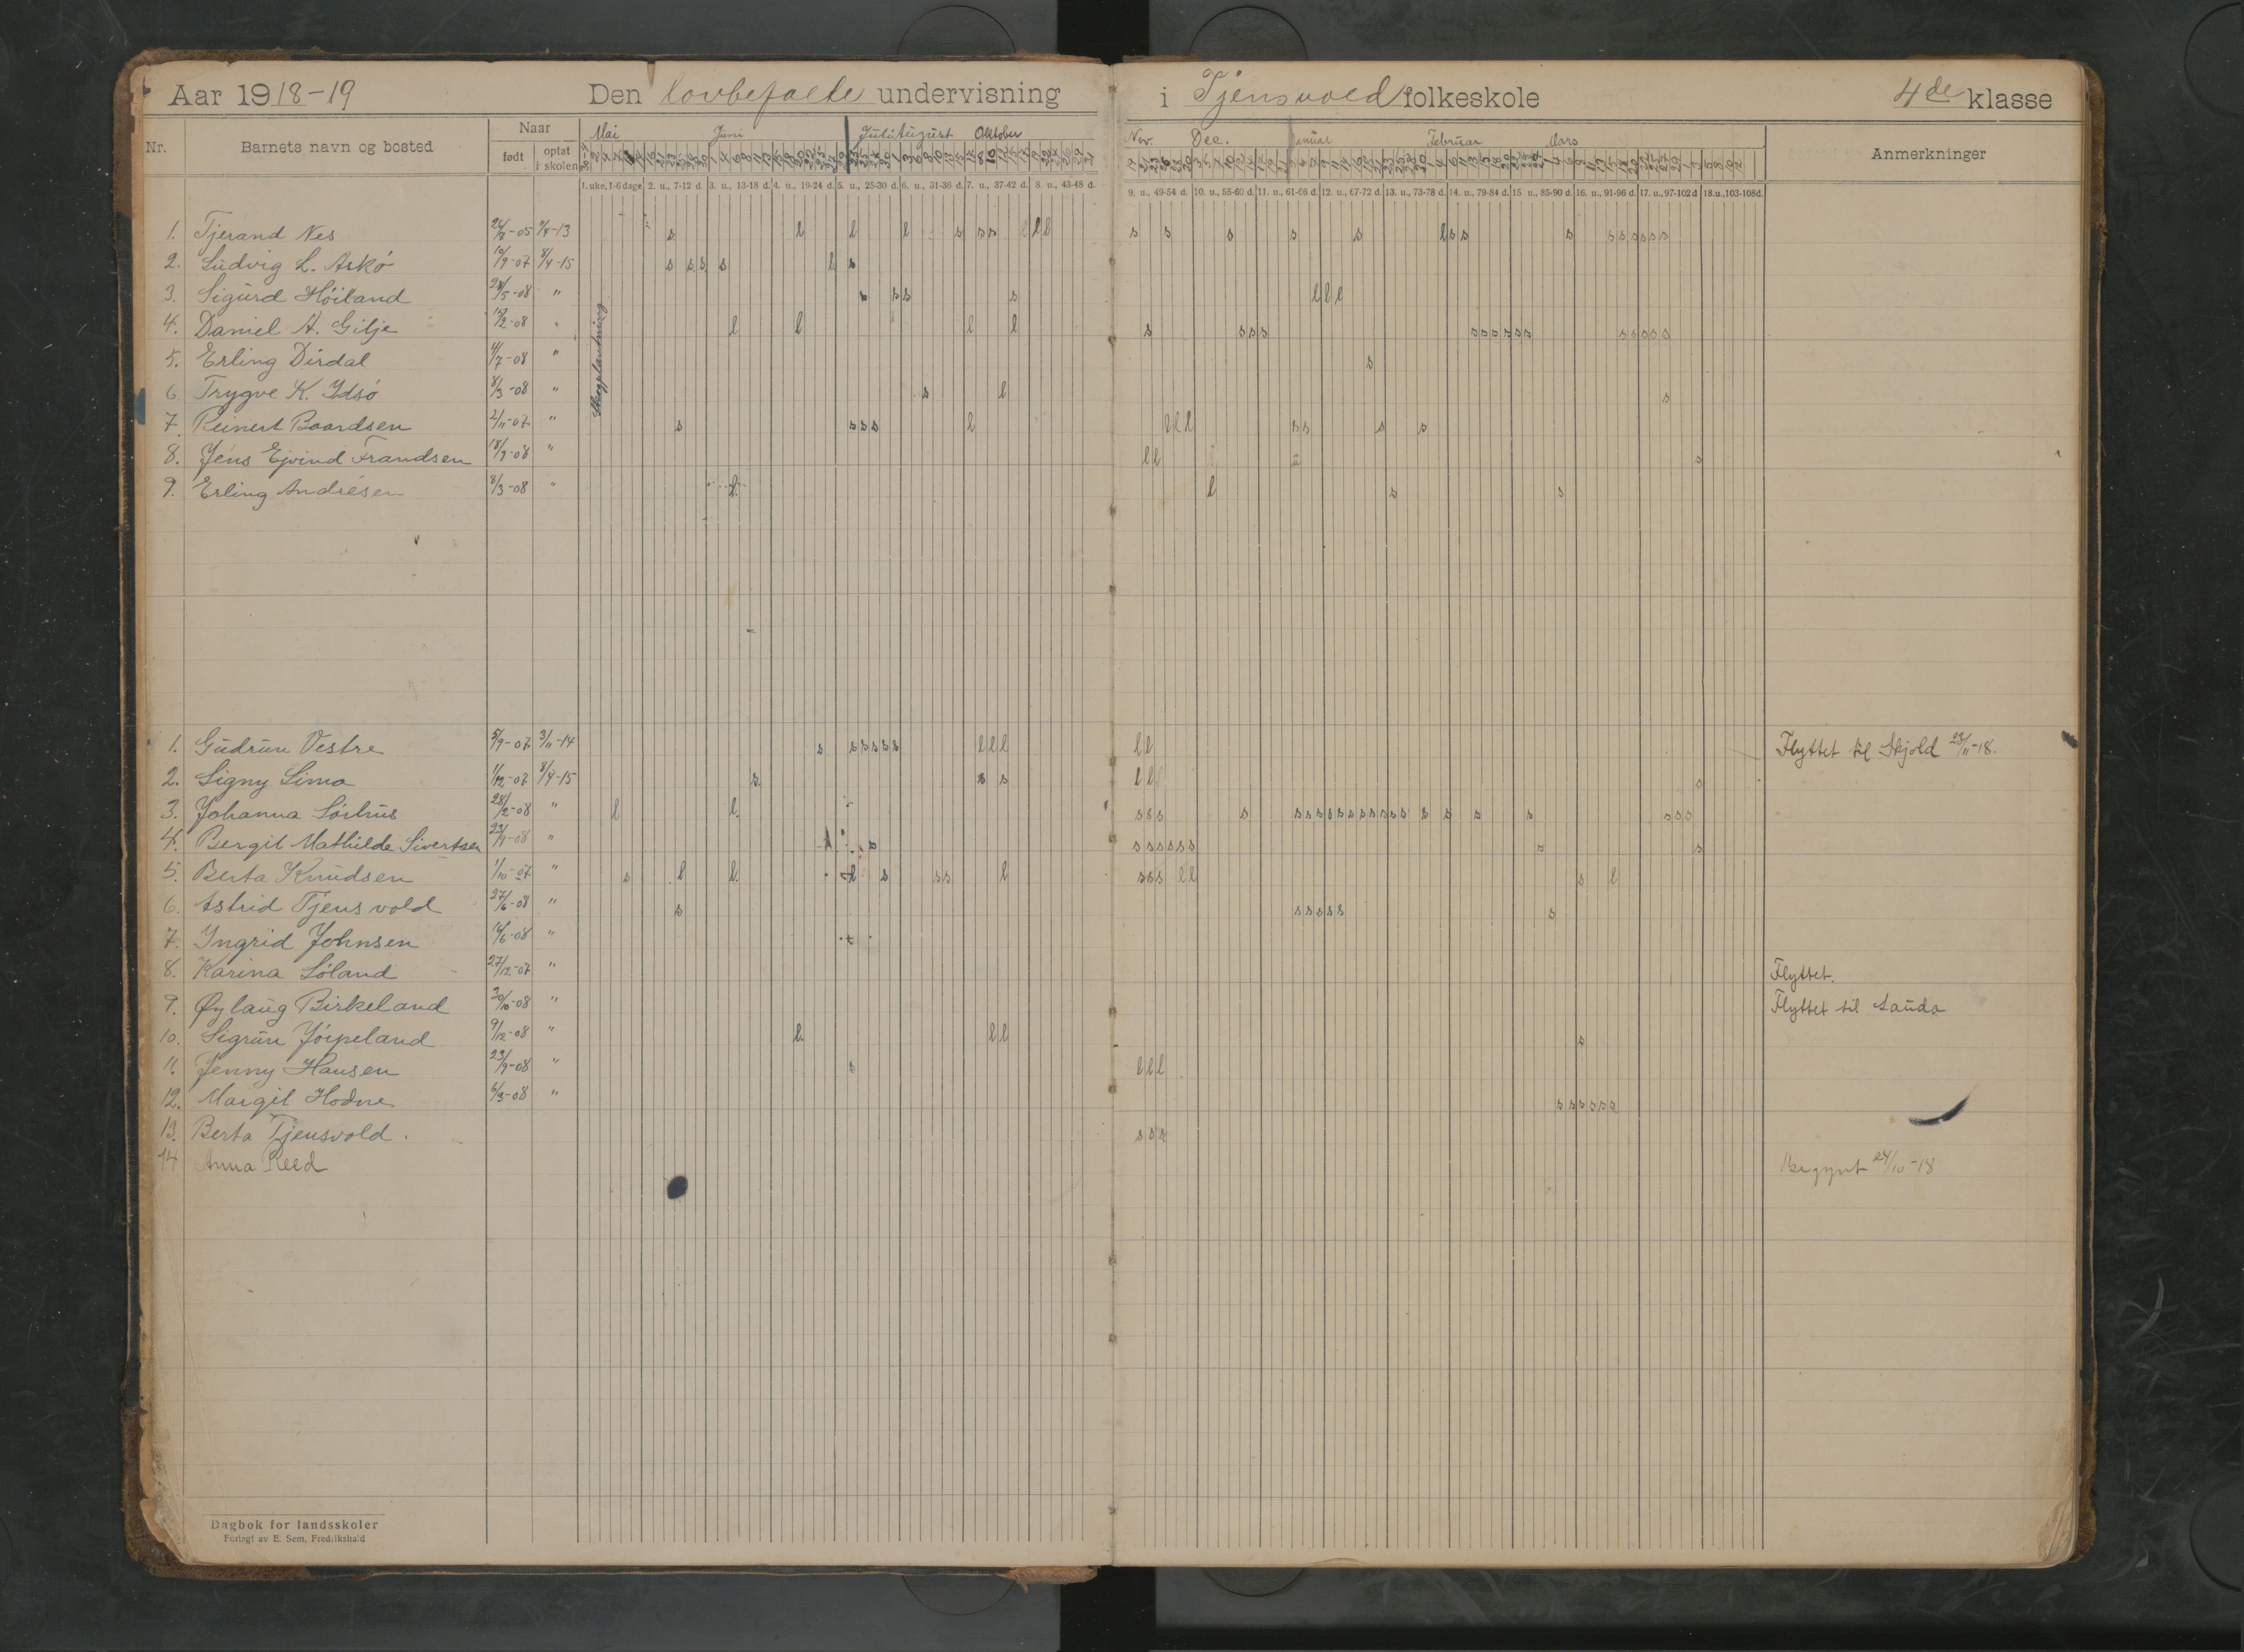 Aar 1918-19 Den lovbefalte undervisning i Tjensvold folkeskole 4de klasse
Nr. Barnets navn og bosted Naar født optat i skolen Mai Juni Juli August Oktober Nov. Dec. Januar Februar Mars Anmerkninger
1. uke, 1-6 dage 2. u., 7-12 d. 3. u., 13-18 d. 4. u., 19-24 d. 5. u., 25-30 d. 6. u., 31-36 d. 7. u., 37-42 d. 8. u., 43-48 d. 9. u., 49-54 d. 10. u., 55-60 d. 11. u., 61-66 d. 12. u., 67-72 d. 13. u., 73-78 d. 14. u., 79-84 d. 15 u., 85-90 d. 16. u., 91-96 d. 17. u., 97-102 d 18. u., 103-108 d.
1. Tjerand Nes 24/8-05 -13 s l l l s s s l l l s s s s s l s s s s s s s s s
2. Ludvig L. Askö 10/9-07 8/4-15 s s s s l s
3. Sigurd Höiland 24/5-08 " s s s s l l l
4. Daniel A. Gilje 12/2-08 " l l l l s s s s s s s s s s s s s s s
Skogplantning
5. Erling Dirdal 4/7-08 " s
6. Trygve K. Idsö 8/3-08 " s l s
7. Reinert Baardsen 2/11-07 " s s s s l l l l s s s s
8. Jens Ejvind Frandsen 18/9-08 " l l s
9. Erling Andresen 8/3-08 " l l s s
1. Gudrun Vestre 5/9-07 3/11-14 s s s s s s l l l l l Flyttet til Skjold 23/11-18.
2. Signy Lima 1/12-07 8/4-15 s s s l l s
3. Johanna Sörhus 28/2-08 " l l s s s s s s s s s s s s s s s s s s s s s s s
4. Bergit Mathilde Sivertsen 23/9-08 " s s s s s s s s s
5. Berta Knudsen 1/10-07 " s l l l s s s l s s s l l s l
6. Astrid Tjensvold 27/6-08 " s s s s s s s
7. Ingrid Johnsen 14/6-08 "
8. Karina Söland 27/12-07 " Flyttet.
9. Øylaug Birkeland 30/10-08 " Flyttet til Sauda
10. Sigrun Jörpeland 9/12-08 " l l l s
11. Jenny Hansen 23/9-08 " s l l l
12. Margit Hodne 6/3-08 " s s s s s s
13. Berta Tjensvold. s s s
14 Anna Reed Begynt 24/10-18
Dagbok for landsskoler
Forlagt av E. Sem, Fredrikshald